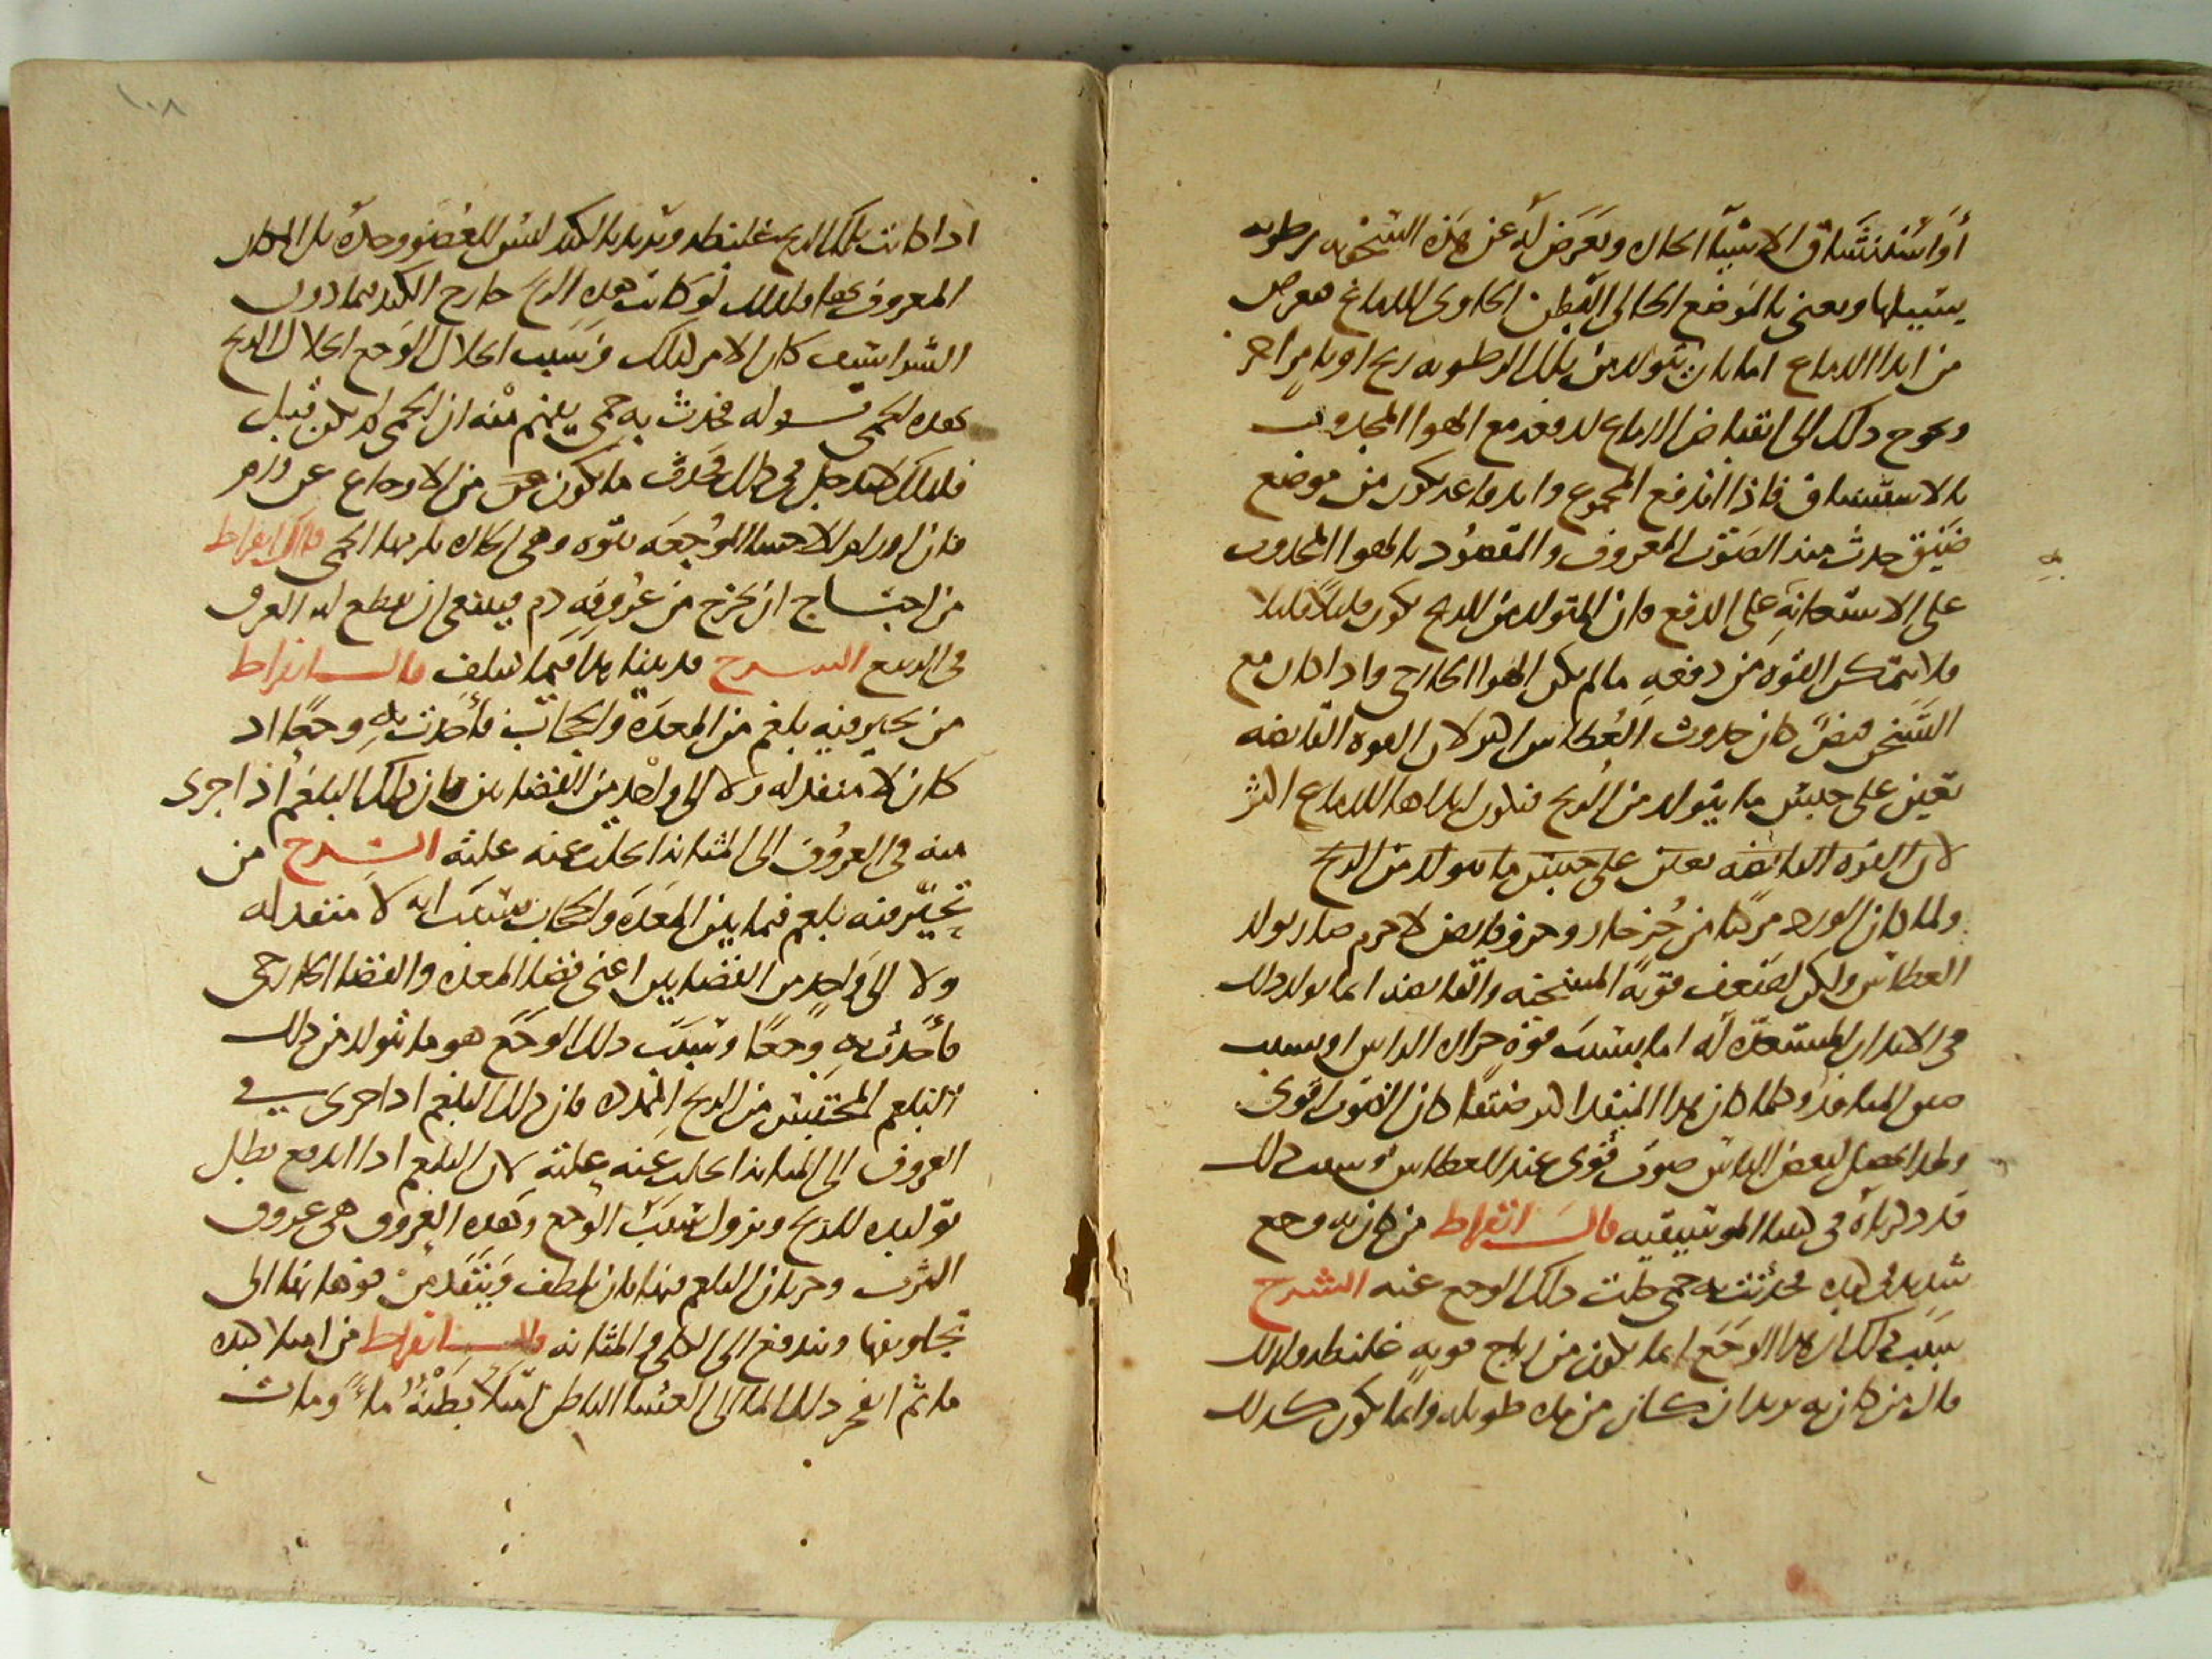 أو استنشاق الاشيا الحاره ويعرض له عن هذه السخونه رطوبه
يسيلها ويعنى بالموضع الخالى البطن الحاوى للدماغ فعرض
من ابدا الدماع اما بان يتولد من تلك الرطوبه ريح او بامر اخر
ويحوج ذلك الى انقباض الدماع لدفعه مع الهوا المجذوب
بالاستنشاق فاذا اندفع المجموع واندفاعه يكون من موضع
ضيق حدث منه الصوت المعروف والمقصود بالهوا المجذوب
على الاستعانه على الدفع فان المتولد من الريح يكون قليلا قليلا
فلا يتمكن القوه من دفعه ما لم يكن الهوا الخارجى واذا كان مع
التسخن قبض كان حدوث العطاس اكثر لان القوه القابضه
تعين على حبس ما يتولد من الريح فيكون ايذاها للدماع اكثر
لان القوه القابضه تعين على حبس ما يتولد من الريح
ولما كان الورد مركبا من جز حار وجز قابض لا جرم صار يولد
العطاس ولكن لضعف قوته المسخنه والقابضه انما يولد ذلك
فى الابدان المستعده له اما بسبب قوه حراره الراس او بسبب
ضيق المنافذ وكلما كان هذا المنفذ اكثر ضيقا كان الصوت اقوى
ولهذا يحصل لبعض الناس صوت قوى عند العطاس وسبب ذلك
قد ذكرناه فى كتبنا الموسيقيه قال ابقراط من كان به وجع
شديد فى كبده فحدثت به حمى حلت ذلك الوجع عنه الشرح
سبب ذلك ان هذا الوجع انما يكون من رياح قويه غليظه ولذلك
قال من كان به يريد ان كان من مده طويله وانما يكون كذلك
١٠٨
اذا كانت تلك الريح غليظه ويريد بالكبد ليس للعضو وحده بل المكان
المعروف بها وكذلك لو كانت هذه الريح خارج الكبد فيما دون
الشراسيف كان الامر كذلك وسبب انحلال الوجع انحلال الريح
بهذه الحمى قوله فحدثت به حمى يفهم منه ان الحمى لم تكن قبل
فلذلك لا يدخل فى ذلك ما يكون من الاوجاع عن ورم
فان اورام الاحشا الموجعه بقوه وهى الحاره يلزمها الحمى قال ابقراط
من احتاج ان يخرج من عروقه دم فينبغى ان يقطع له العرق
فى الربيع الشرح قد بينا هذا فيما سلف قال ابقراط
من تحير فيه بلغم من المعده والحجاب فأحدث به وجعا اذ
كان لا منفذ له ولا الى واحد من الفضاين فان ذلك البلغم اذا جرى
منه فى العروق الى المثانه انحلت عنه علته الشرح من
تحيّر فيه بلغم فيما بين المعده والحجاب بسبب انه لا منفذ له
ولا الى واحد من الفضاين اعنى فضا المعده والفضا الخارجى
فأحدث به وجعا وسبب ذلك الوجع هو ما يتولد من ذلك
البلغم المحتبس من الريح الممدده فان ذلك البلغم اذا جرى فى
العروق الى المثانه انحلت عنه علته لان البلغم اذا اندفع بطل
توليده للريح ويزول سبب الوجع وهذه العروق هى عروق
الثرب وجريان البلغم فيها بان يلطف وينفذ من فوهاتها الى
تجاويفها ويندفع الى الكلى والمثانه قال ابقراط من امتلا كبده
ما ثم انفجر ذلك الما الى الغشا الباطن امتلا بطنه ماءً ومات